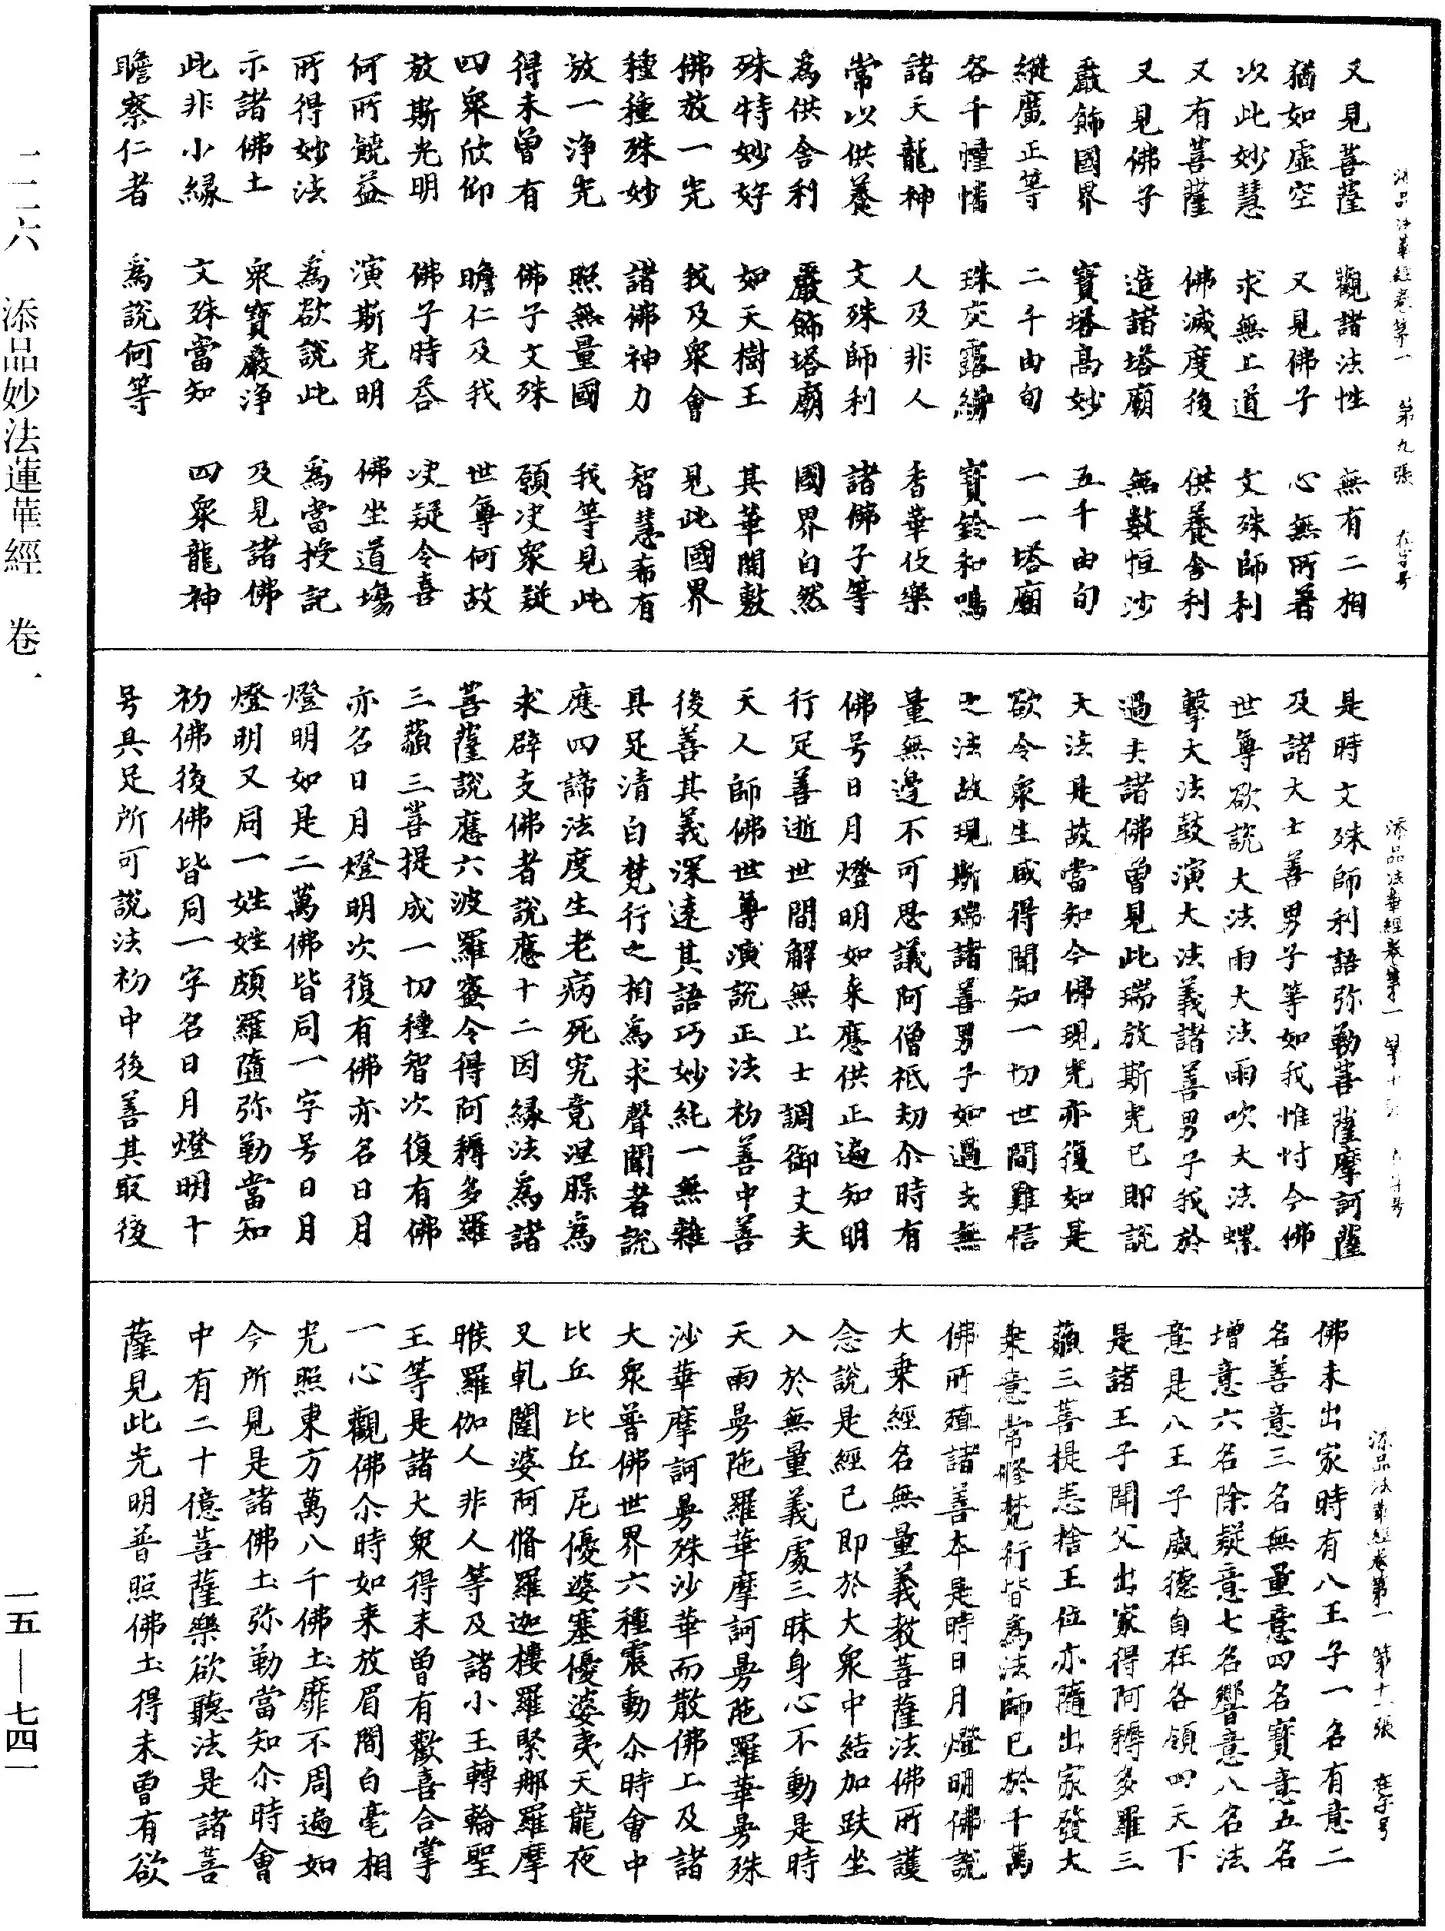 添品法華經卷第一　第九張　在字号
又見菩薩　觀諸法性　無有二相
猶如虛空　又見佛子　心無所著
以此妙慧　求無上道　文殊師利
又有菩薩　佛滅度後　供養舍利
又見佛子　造諸塔廟　無數恒沙
嚴飾國界　寶塔高妙　五千由旬
縱廣正等　二千由旬　一一塔廟
各千幢幡　珠交露縵　寶鈴和鳴
諸天龍神　人及非人　香華伎樂
常以供養　文殊師利　諸佛子等
為供舍利　嚴飾塔廟　國界自然
殊特妙好　如天樹王　其華開敷
佛放一光　我及眾會　見此國界
種種殊妙　諸佛神力　智慧希有
放一淨光　照無量國　我等見此
得未曾有　佛子文殊　願決眾疑
四眾欣仰　瞻仁及我　世尊何故
放斯光明　佛子時答　決疑令喜
何所饒益　演斯光明　佛坐道場
所得妙法　為欲說此　為當授記
示諸佛土　眾寶嚴淨　及見諸佛
此非小緣　文殊當知　四眾龍神
瞻察仁者　為說何等
添品法華經卷第一　第十張　在字号
是時文殊師利語弥勒菩薩摩訶薩
及諸大士善男子等如我惟忖今佛
世尊欲說大法雨大法雨吹大法螺
擊大法鼓演大法義諸善男子我於
過去諸佛曾見此瑞放斯光已即說
大法是故當知今佛現光亦復如是
欲令眾生咸得聞知一切世間難信
之法故現斯瑞諸善男子如過去無
量無邊不可思議阿僧祇劫尒時有
佛号日月燈明如来應供正遍知明
行足善逝世間解無上士調御丈夫
天人師佛世尊演說正法初善中善
後善其義深遠其語巧妙純一無雜
具足清白梵行之相為求聲聞者說
應四諦法度生老病死究竟涅槃為
求辟支佛者說應十二因緣法為諸
菩薩說應六波羅蜜令得阿耨多羅
三藐三菩提成一切種智次復有佛
亦名日月燈明次復有佛亦名日月
燈明如是二萬佛皆同一字号日月
燈明又同一姓姓頗羅墮弥勒當知
初佛後佛皆同一字名日月燈明十
号具足所可說法初中後善其冣後
添品法華經卷第一　第十一張　在字号
佛未出家時有八王子一名有意二
名善意三名無量意四名寶意五名
增意六名除疑意七名響意八名法
意是八王子威德自在各領四天下
是諸王子聞父出家得阿耨多羅三
藐三菩提悉捨王位亦隨出家發大
乘意常修梵行皆為法師已於千萬
佛所殖諸善本是時日月燈明佛說
大乘經名無量義教菩薩法佛所護
念說是經已即於大眾中結加趺坐
入於無量義處三昧身心不動是時
天雨曼陁羅華摩訶曼陁羅華曼殊
沙華摩訶曼殊沙華而散佛上及諸
大眾普佛世界六種震動尒時會中
比丘比丘尼優婆塞優婆夷天龍夜
叉乹闥婆阿脩羅迦樓羅緊那羅摩
睺羅伽人非人等及諸小王轉輪聖
王等是諸大眾得未曾有歡喜合掌
一心觀佛尒時如来放眉間白毫相
光照東方萬八千佛土靡不周遍如
今所見是諸佛土弥勒當知尒時會
中有二十億菩薩樂欲聽法是諸菩
薩見此光明普照佛土得未曾有欲
二二六　添品妙法蓮華經　卷一
一五——七四一